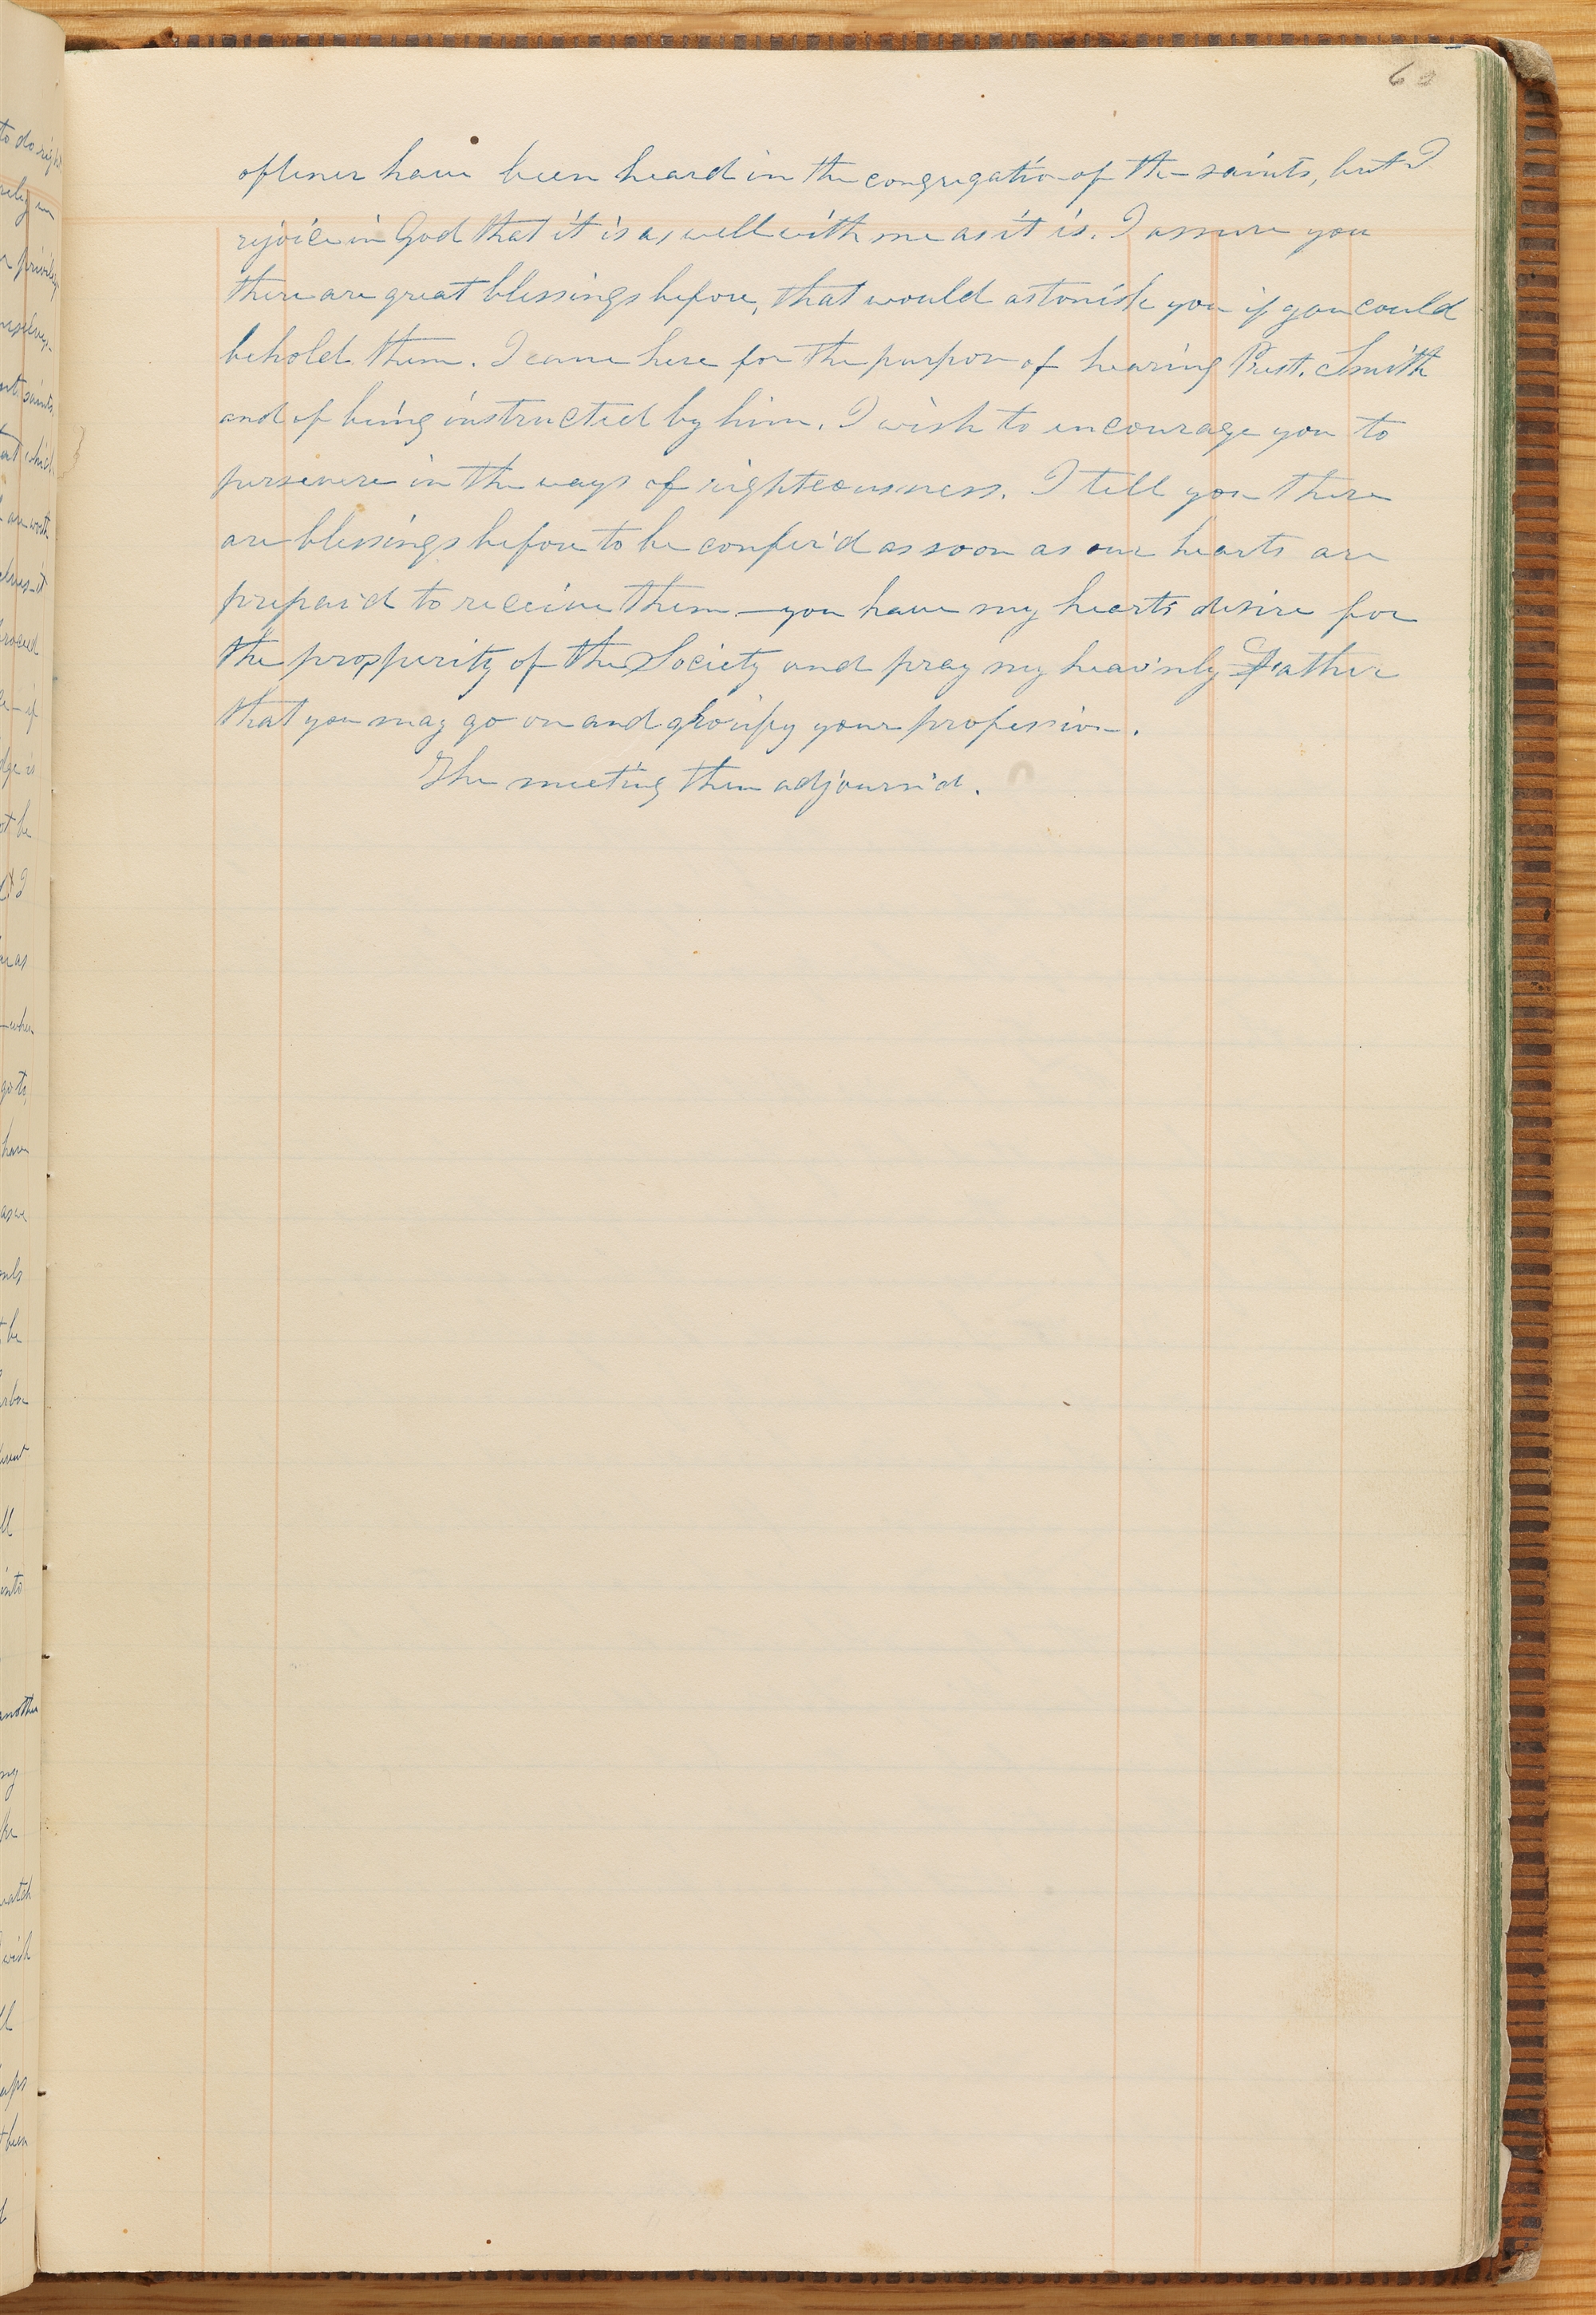 60
oftener have been heard in the congregation of the saints, but I
rejoice in God that it is as well with me as it is. I assure you
there are great blessings before, that would astonish you if you could
behold them. I came here for the purpose of hearing Prest. Smith
and of being instructed by him. I wish to encourage you to
persevere in the ways of righteousness. I tell you there
are blessings before to be confer'd as soon as our hearts are
prepar'd to receive them — you have my hearts desire for
the prosperity of the Society and pray my heav'nly Father
that you may go on and glorify your profession.
The meeting then adjourn'd.